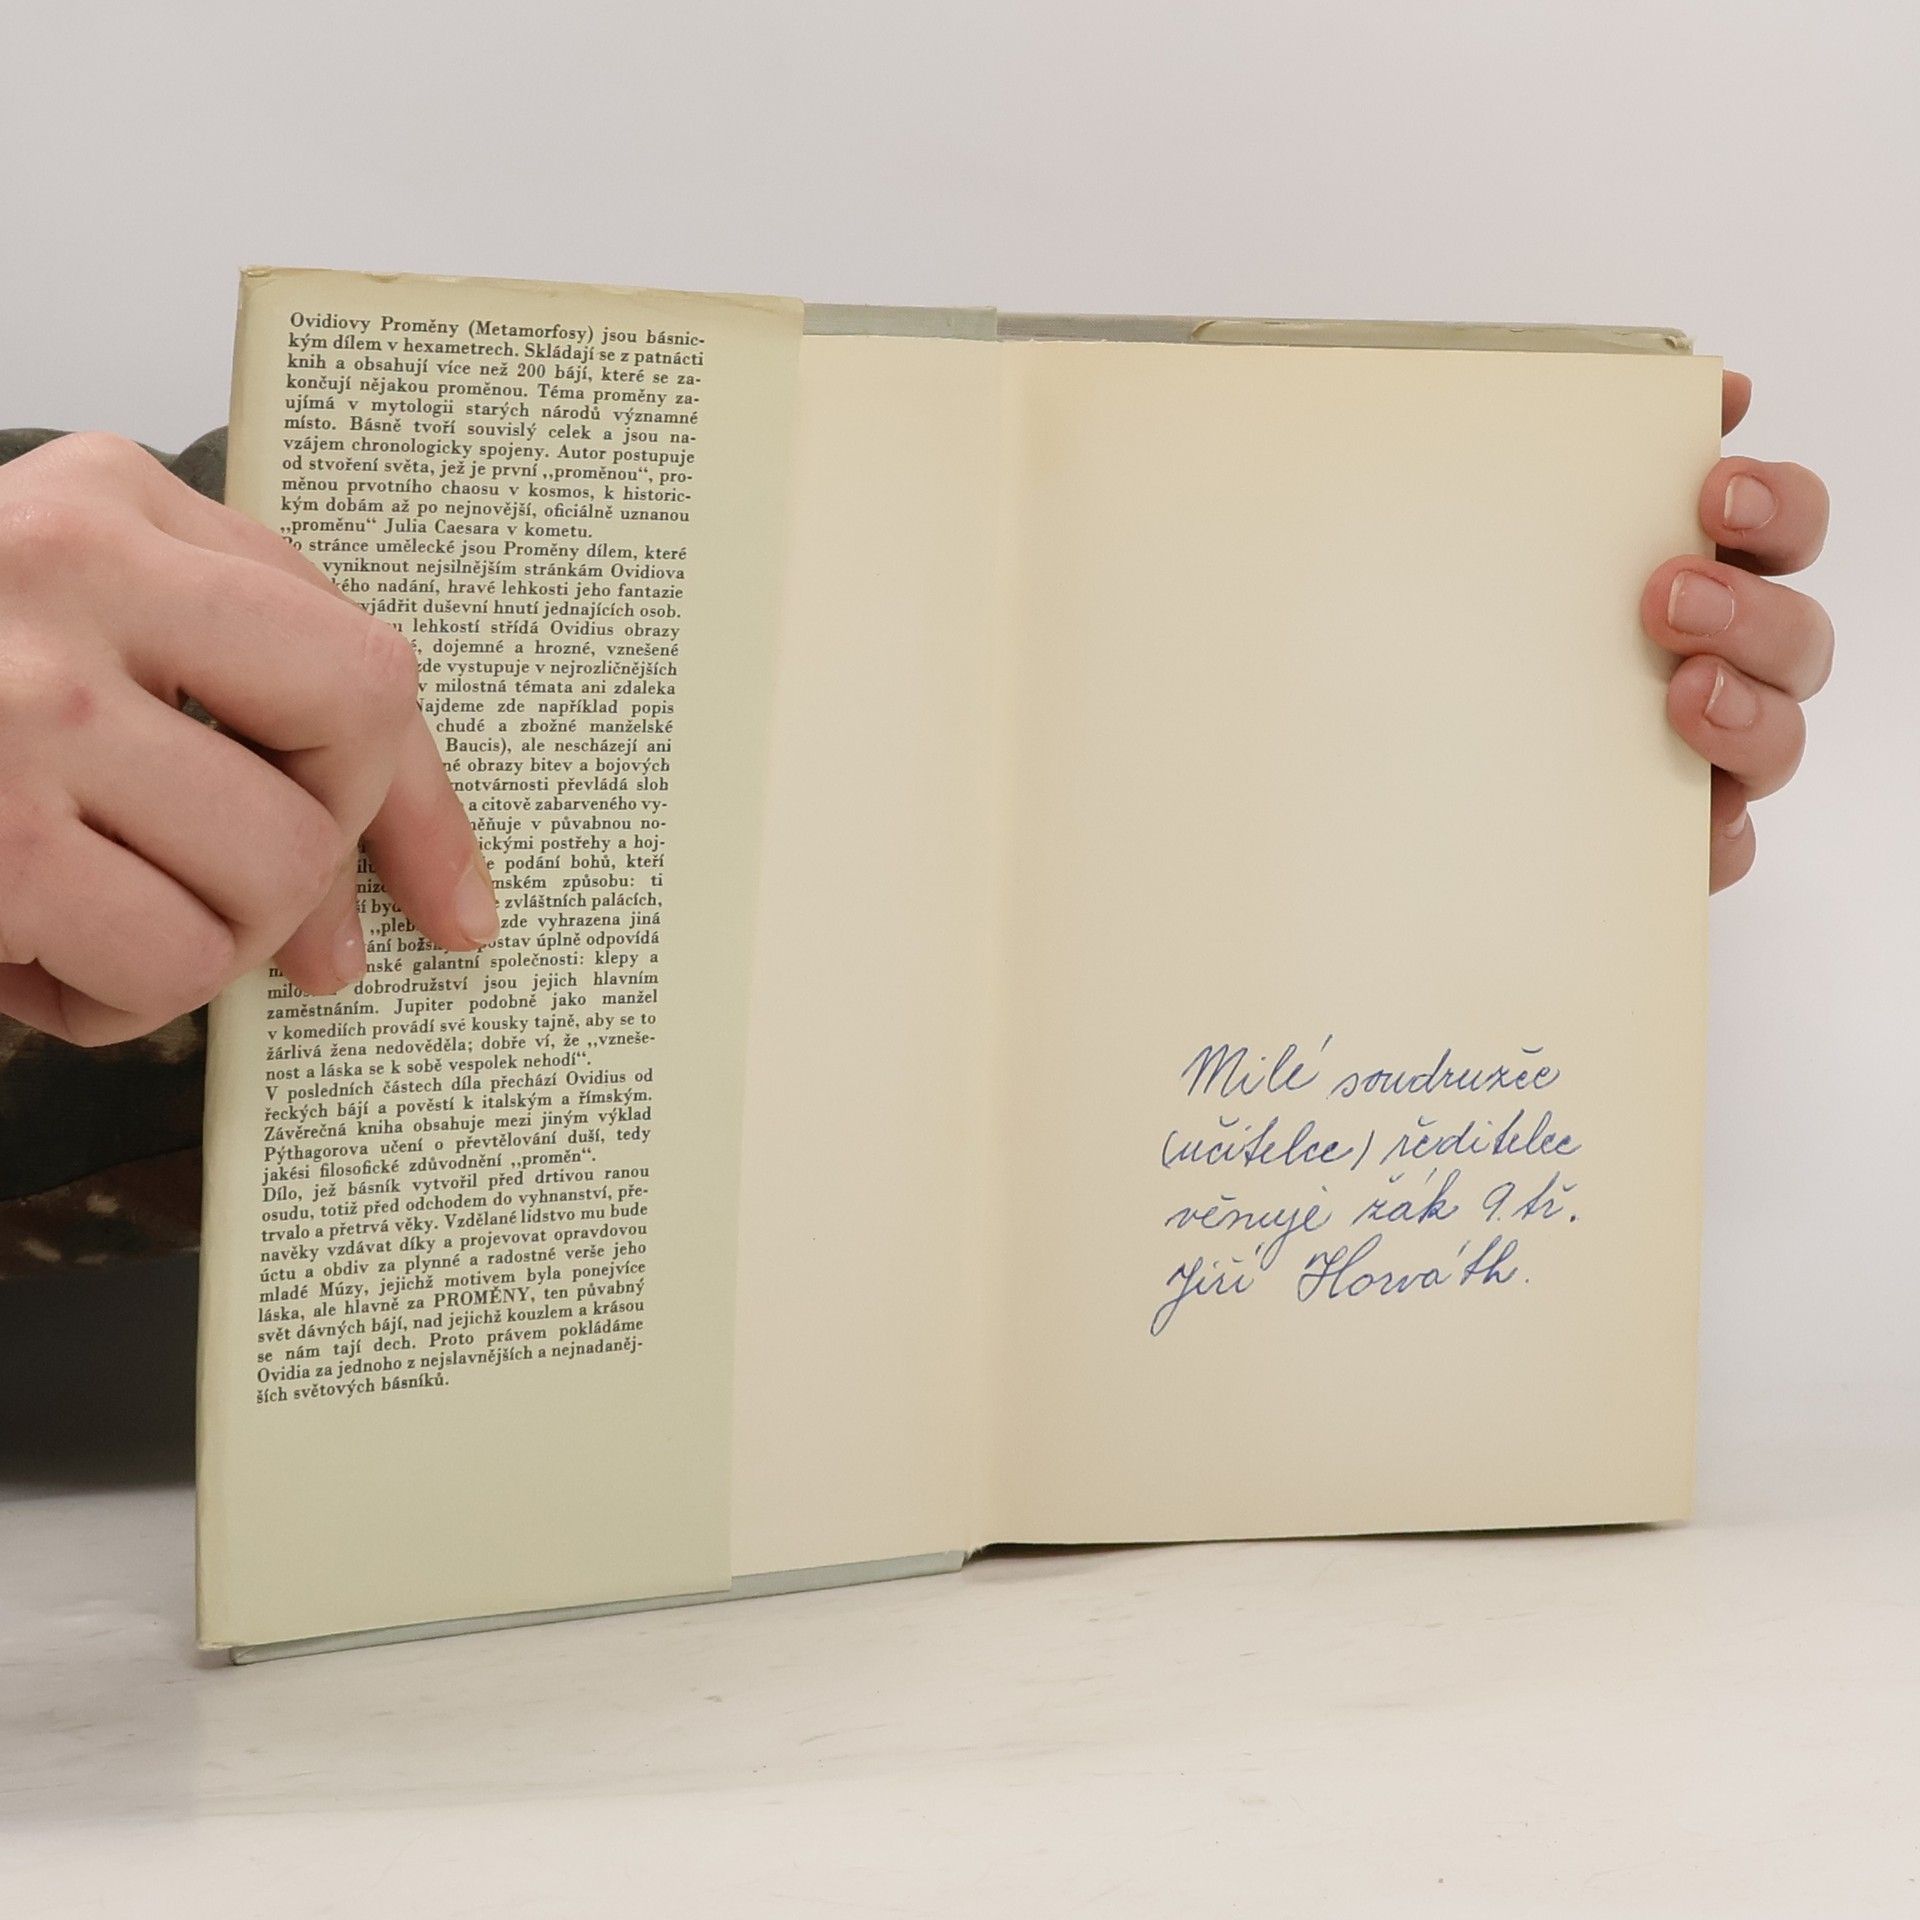 Ovidiovy Proměny (Metamorfosy) jsou básnic-
kým dílem v hexametrech. Skládají se z patnácti
knih a obsahují více než 200 bájí, které se za-
končují nějakou proměnou. Téma proměny za-
ujímá v mytologii starých národů významné
místo. Básně tvoří souvislý celek a jsou na-
vzájem chronologicky spojeny. Autor postupuje
od stvoření světa, jež je první „proměnou“, pro-
měnou prvotního chaosu v kosmos, k historic-
kým dobám až po nejnovější, oficiálně uznanou
„proměnu“ Julia Caesara v kometu.
Po stránce umělecké jsou Proměny dílem, které
vyniknout nejsilnějším stránkám Ovidiova
nadání, hravé lehkosti jeho fantazie
vyjádřit duševní hnutí jednajících osob.
lehkostí střídá Ovidius obrazy
dojemné a hrozné, vznešené
zde vystupuje v nejrozličnějších
milostná témata ani zdaleka
Najdeme zde například popis
chudé a zbožné manželské
Baucis), ale nescházejí ani
obrazy bitev a bojových
převládá sloh
a citově zabarveného vy-
v půvabnou no-
postřehy a hoj-
podání bohů, kteří
způsobu: ti
zvláštních palácích,
zde vyhrazena jiná
postav úplně odpovídá
galantní společnosti: klepy a
dobrodružství jsou jejich hlavním
zaměstnáním. Jupiter podobně jako manžel
v komediích provádí své kousky tajně, aby se to
žárlivá žena nedověděla; dobře ví, že „vzneše-
nost a láska se k sobě vespolek nehodí“.
V posledních částech díla přechází Ovidius od
řeckých bájí a pověstí k italským a římským.
Závěrečná kniha obsahuje mezi jiným výklad
Pýthagorova učení o převtělování duší, tedy
jakési filosofické zdůvodnění „proměn“.
Dílo, jež básník vytvořil před drtivou ranou
osudu, totiž před odchodem do vyhnanství, pře-
trvalo a přetrvá věky. Vzdělané lidstvo mu bude
navěky vzdávat díky a projevovat opravdovou
úctu a obdiv za plynné a radostné verše jeho
mladé Múzy, jejichž motivem byla ponejvíce
láska, ale hlavně za PROMĚNY, ten půvabný
svět dávných bájí, nad jejichž kouzlem a krásou
se nám tají dech. Proto právem pokládáme
Ovidia za jednoho z nejslavnějších a nejnadaněj-
ších světových básníků.
Milé soudružce
(učitelce) ředitelce
věnuje žák 9. tř.
Jiří Horváth.